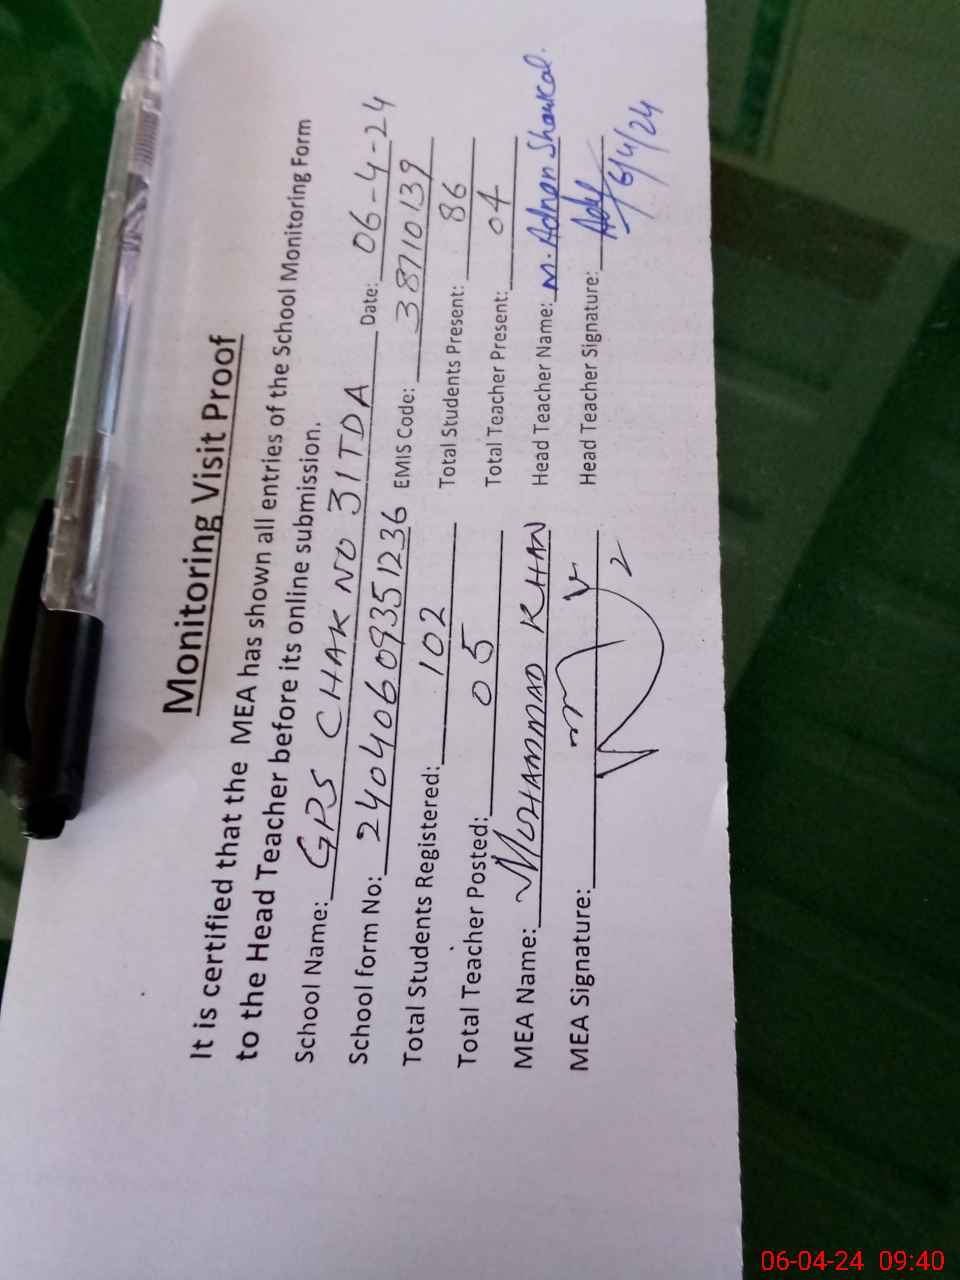 Monitoring Visit Proof
It is certified that the MEA has shown all entries of the School Monitoring Form
to the Head Teacher before its online submission.
School Name: GPS CHAK NO 31TDA Date: 06-4-24
School form No: 24040609351236 EMIS Code: 38710139
Total Students Registered: 102 Total Students Present: 86
Total Teacher Posted: 05 Total Teacher Present: 04
MEA Name: MUHAMMAD KHAN Head Teacher Name: M. Adnan Shaukat.
MEA Signature: Head Teacher Signature:
6/4/24
06-04-24 09:40